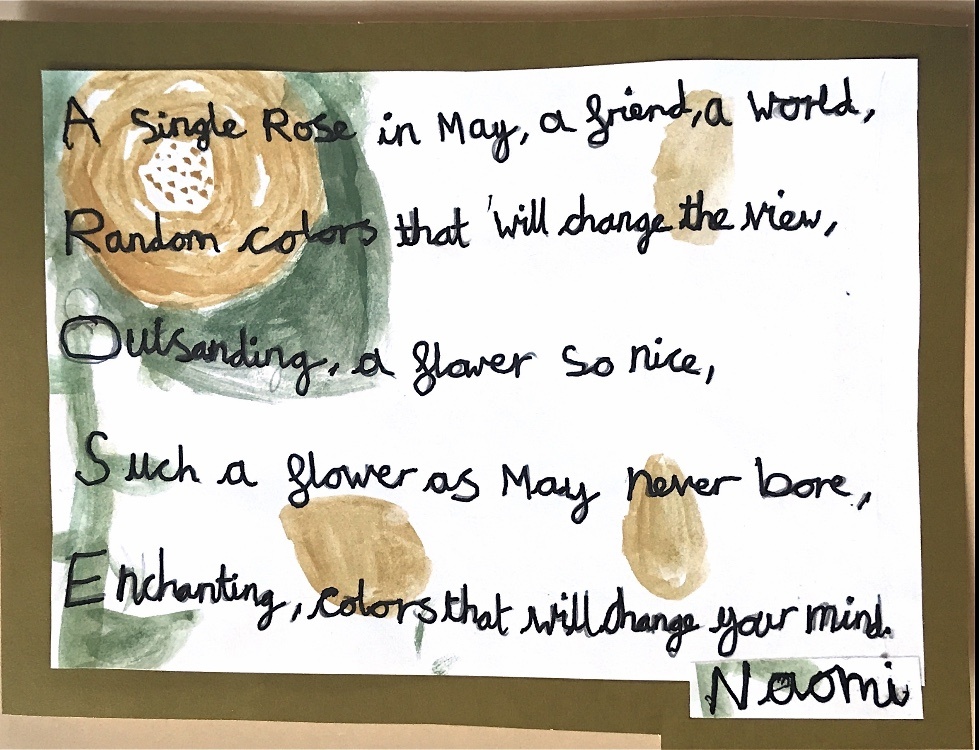 A Single Rose in May, a friend, a world,
Random colors that will change the view,
Outsanding, a flower so nice,
Such a flower as May never bore,
Enchanting, colors that will change your mind.
Naomi